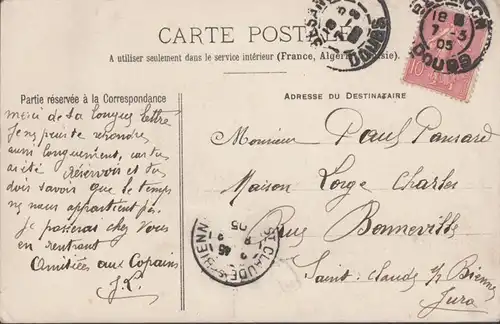 CARTE POSTALE
A utiliser seulement dans le service intérieur (France, Algérie, Tunisie).
Partie réservée à la Correspondance
merci de ta longue lettre
Je ne puis te répondre
aussi longuement, car tu
as été réserviste et tu
dois savoir que le temps
ne nous appartient pas.
Je passerai chez Vous
en rentrant
Amitiées aux Copains
J.L.
ADRESSE DU DESTINATAIRE
Monsieur Paul Pansard
Maison Lorge Charles
Rue Bonneville
Saint-Claude s/ Bienne
Jura
BESANÇON
DOUBS
18
7-3
05
DOUBS
10
ST CLAUDE-S-BIENNE
05